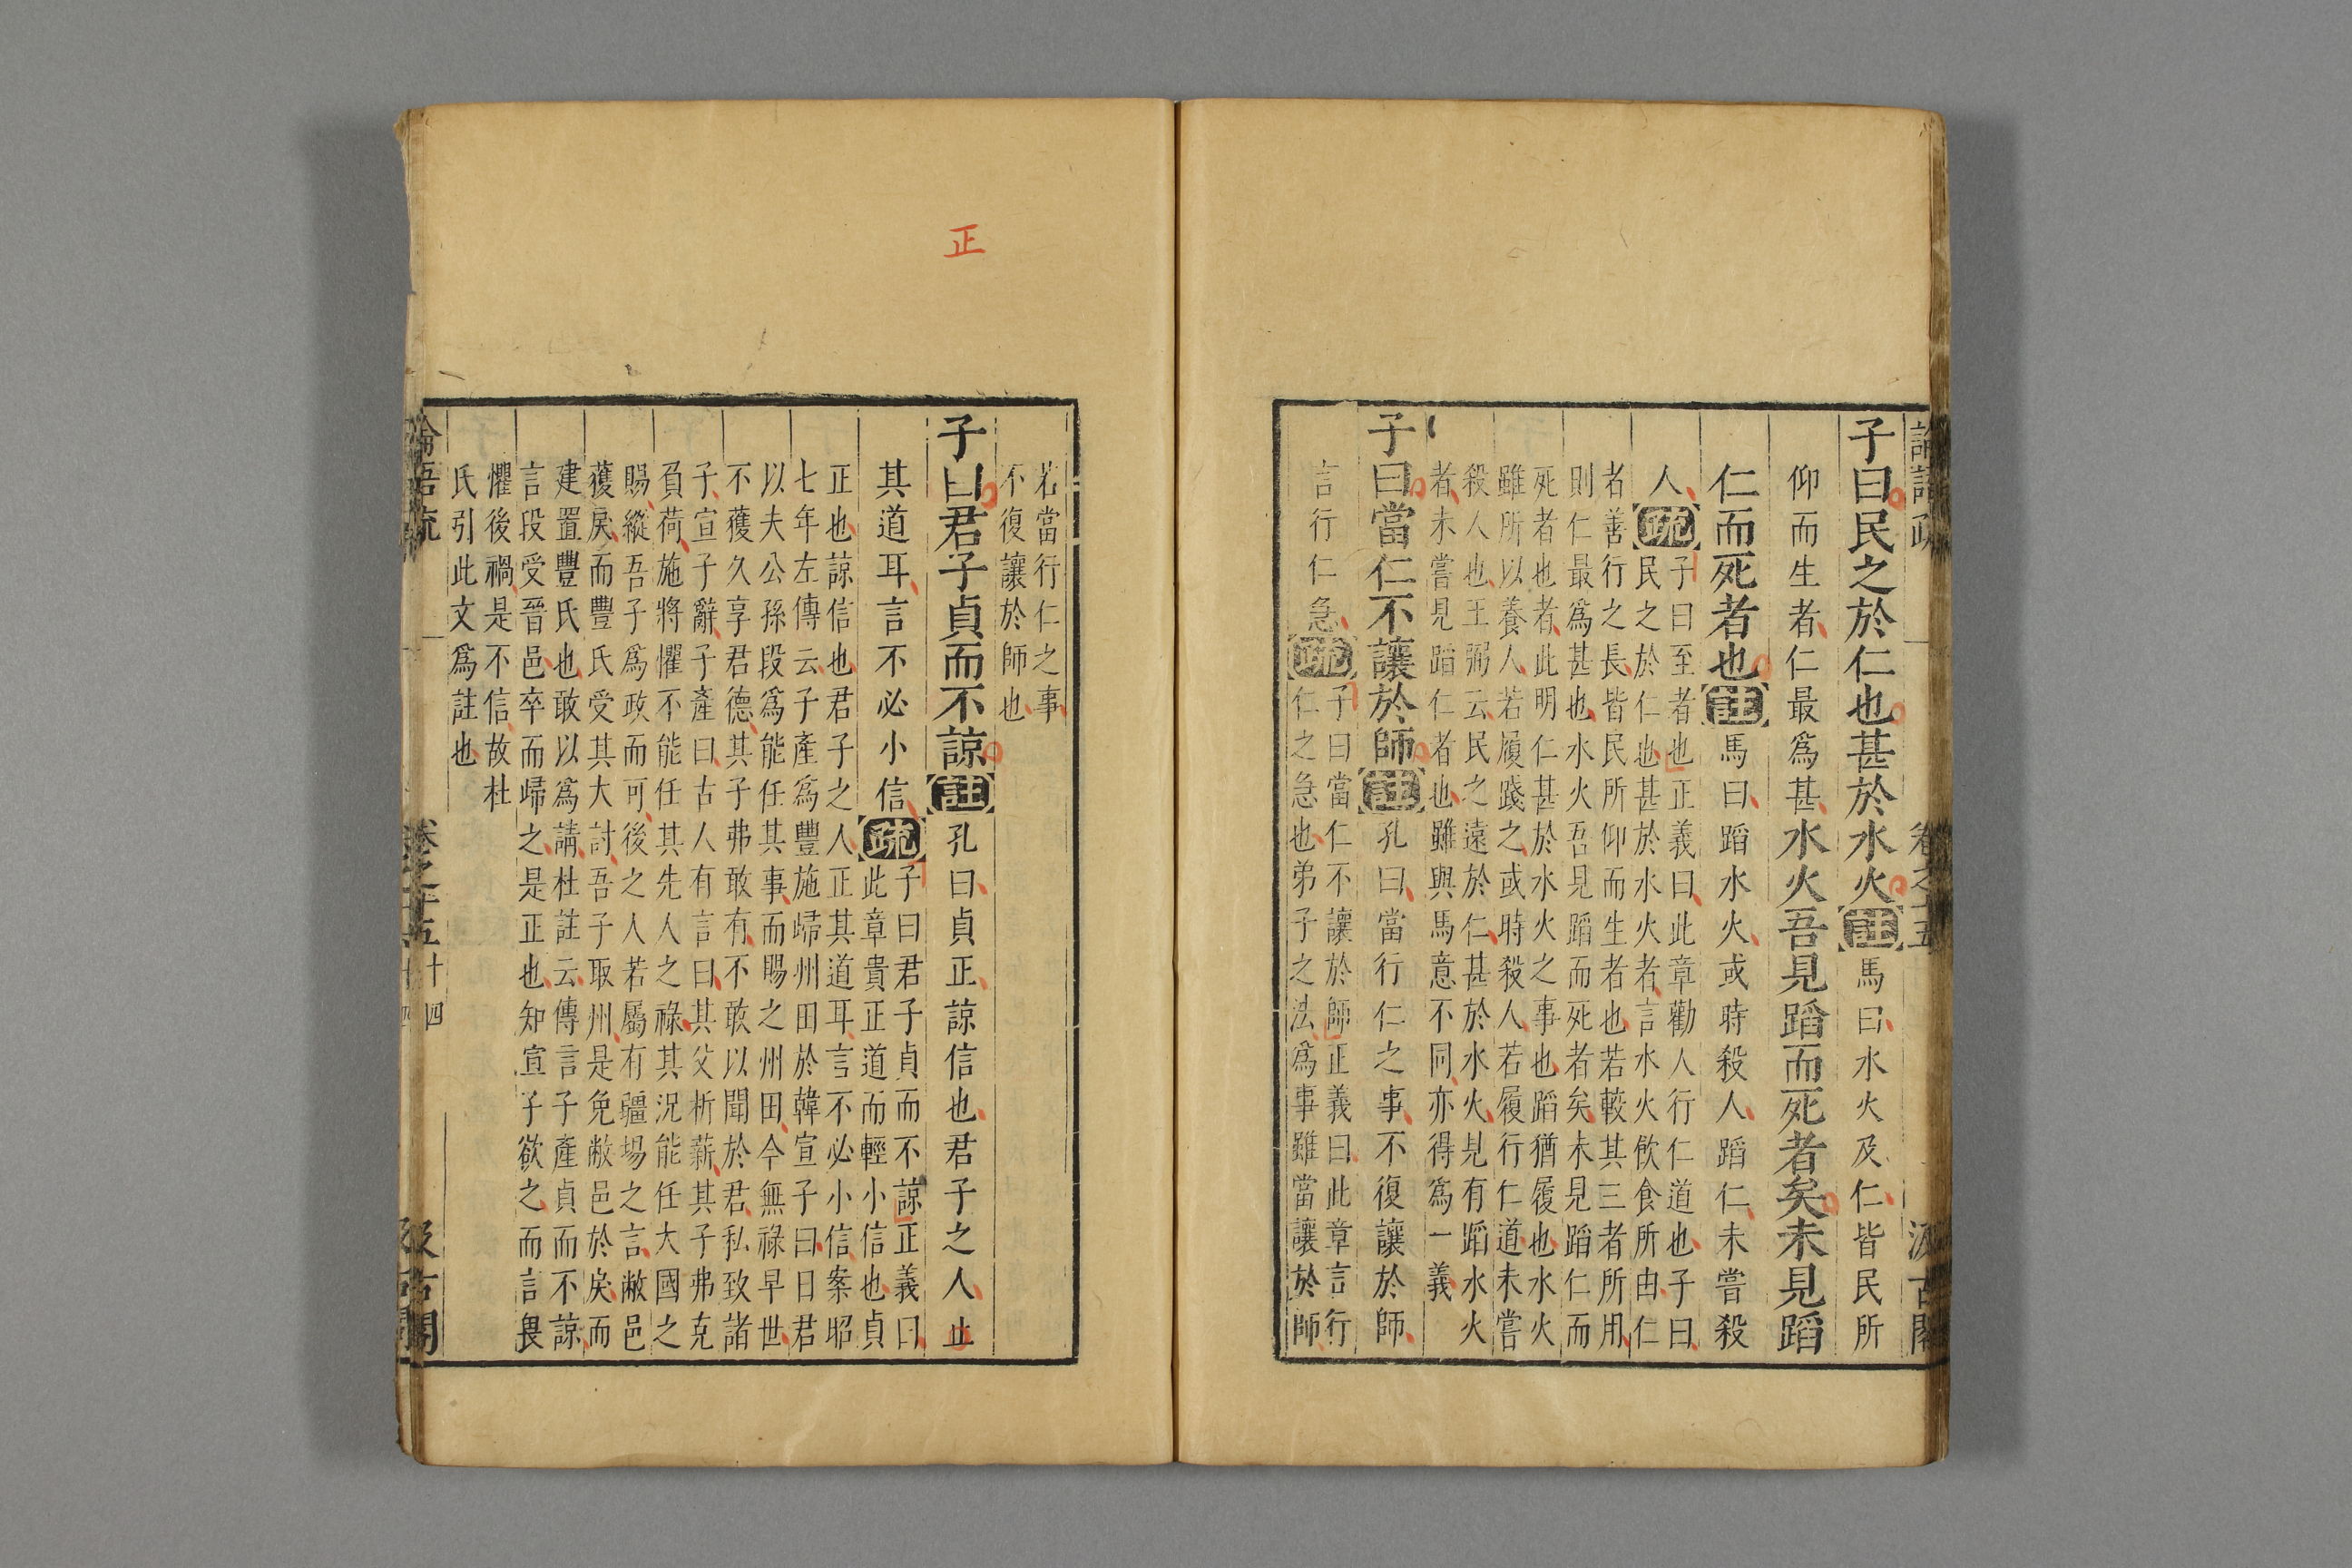 論語疏
卷之十五
汲古閣
子曰民之於仁也甚於水火註馬曰水火及仁皆民所
仰而生者仁最爲甚水火吾見蹈而死者矣未見蹈
仁而死者也註馬曰蹈水火或時殺人蹈仁未嘗殺
人疏
子曰至者也正義曰此章勸人行仁道也子曰
民之於仁也甚於水火者言水火飲食所由仁
者善行之長皆民所仰而生者也若較其三者所用
則仁最爲甚也水火吾見蹈而死者矣未見蹈仁而
死者也者此明仁甚於水火之事也蹈猶履也水火
雖所以養人若履踐之或時殺人若履行仁道未嘗
殺人也王弼云民之遠於仁甚於水火見有蹈水火
者未嘗見蹈仁者也雖與馬意不同亦得爲一義
子曰當仁不讓於師註孔曰當行仁之事不復讓於師
言行仁急疏
子曰當仁不讓於師正義曰此章言行
仁之急也弟子之法爲事雖當讓於師
若當行仁之事
不復讓於師也
正
子曰君子貞而不諒註孔曰貞正諒信也君子之人止
其道耳言不必小信疏
子曰君子貞而不諒正義曰
此章貴正道而輕小信也貞
正也諒信也君子之人正其道耳言不必小信案昭
七年左傳云子產爲豐施歸州田於韓宣子曰日君
以夫公孫段爲能任其事而賜之州田今無祿早世
不獲久享君德其子弗敢有不敢以聞於君私致諸
子宣子辭子產曰古人有言曰其父析薪其子弗克
負荷施將懼不能任其先人之祿其況能任大國之
賜縱吾子爲政而可後之人若屬有疆場之言敝邑
獲戾而豐氏受其大討吾子取州是免敝邑於戾而
建置豐氏也敢以爲請杜註云傳言子產貞而不諒
言段受晉邑卒而歸之是正也知宣子欲之而言畏
懼後禍是不信故杜
氏引此文爲註也
論語疏
卷之十五
十四
汲古閣